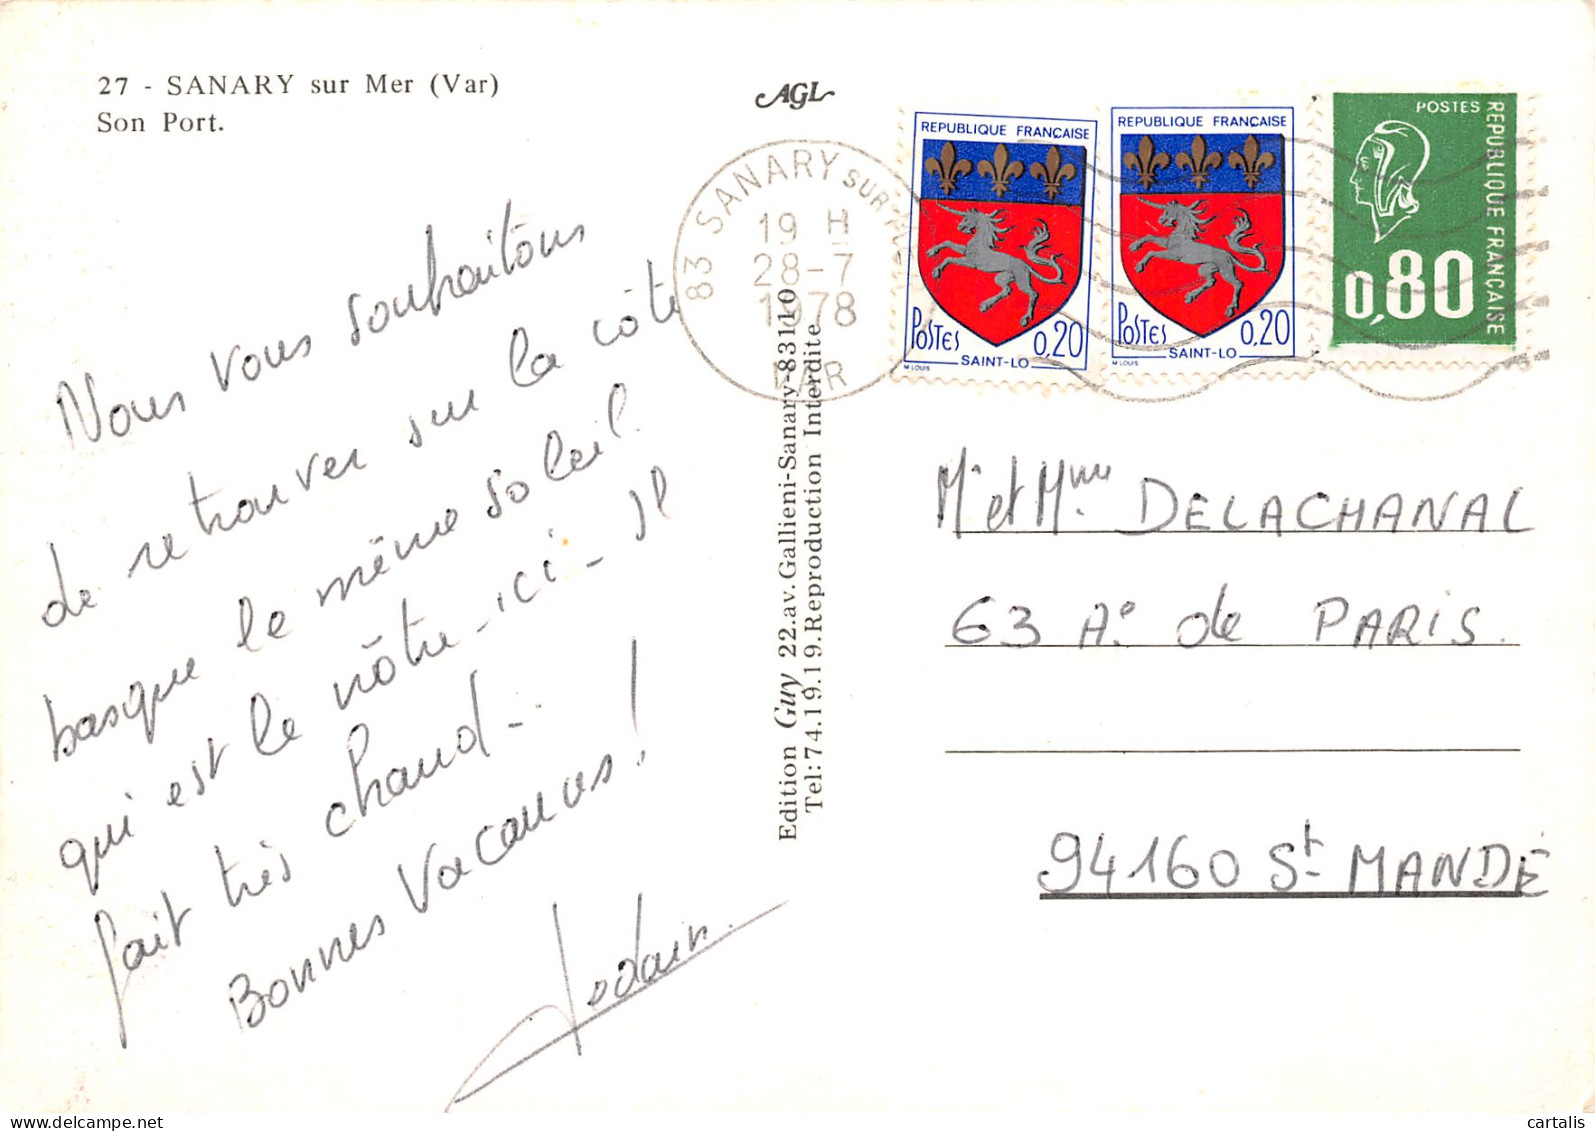 27 - SANARY sur Mer (Var)
Son Port.
AGL
83 SANARY SUR
19 H
28-7
1978
VAR
REPUBLIQUE FRANÇAISE
POSTES 0,20
SAINT-LO
M LOUIS
REPUBLIQUE FRANÇAISE
POSTES 0,20
SAINT-LO
M LOUIS
POSTES
REPUBLIQUE FRANÇAISE
0,80
Nous vous souhaitons
de retrouver sur la côte
basque le même soleil
qui est le nôtre ici - Il
fait très chaud -
Bonnes Vacances !
Edition Guy 22.av.Gallieni-Sanary-83110
Tel:74.19.19.Reproduction Interdite
Mr et Mme DELACHANAL
63 Ae de PARIS.
94160 St MANDÉ
delcampe.net
cartalis